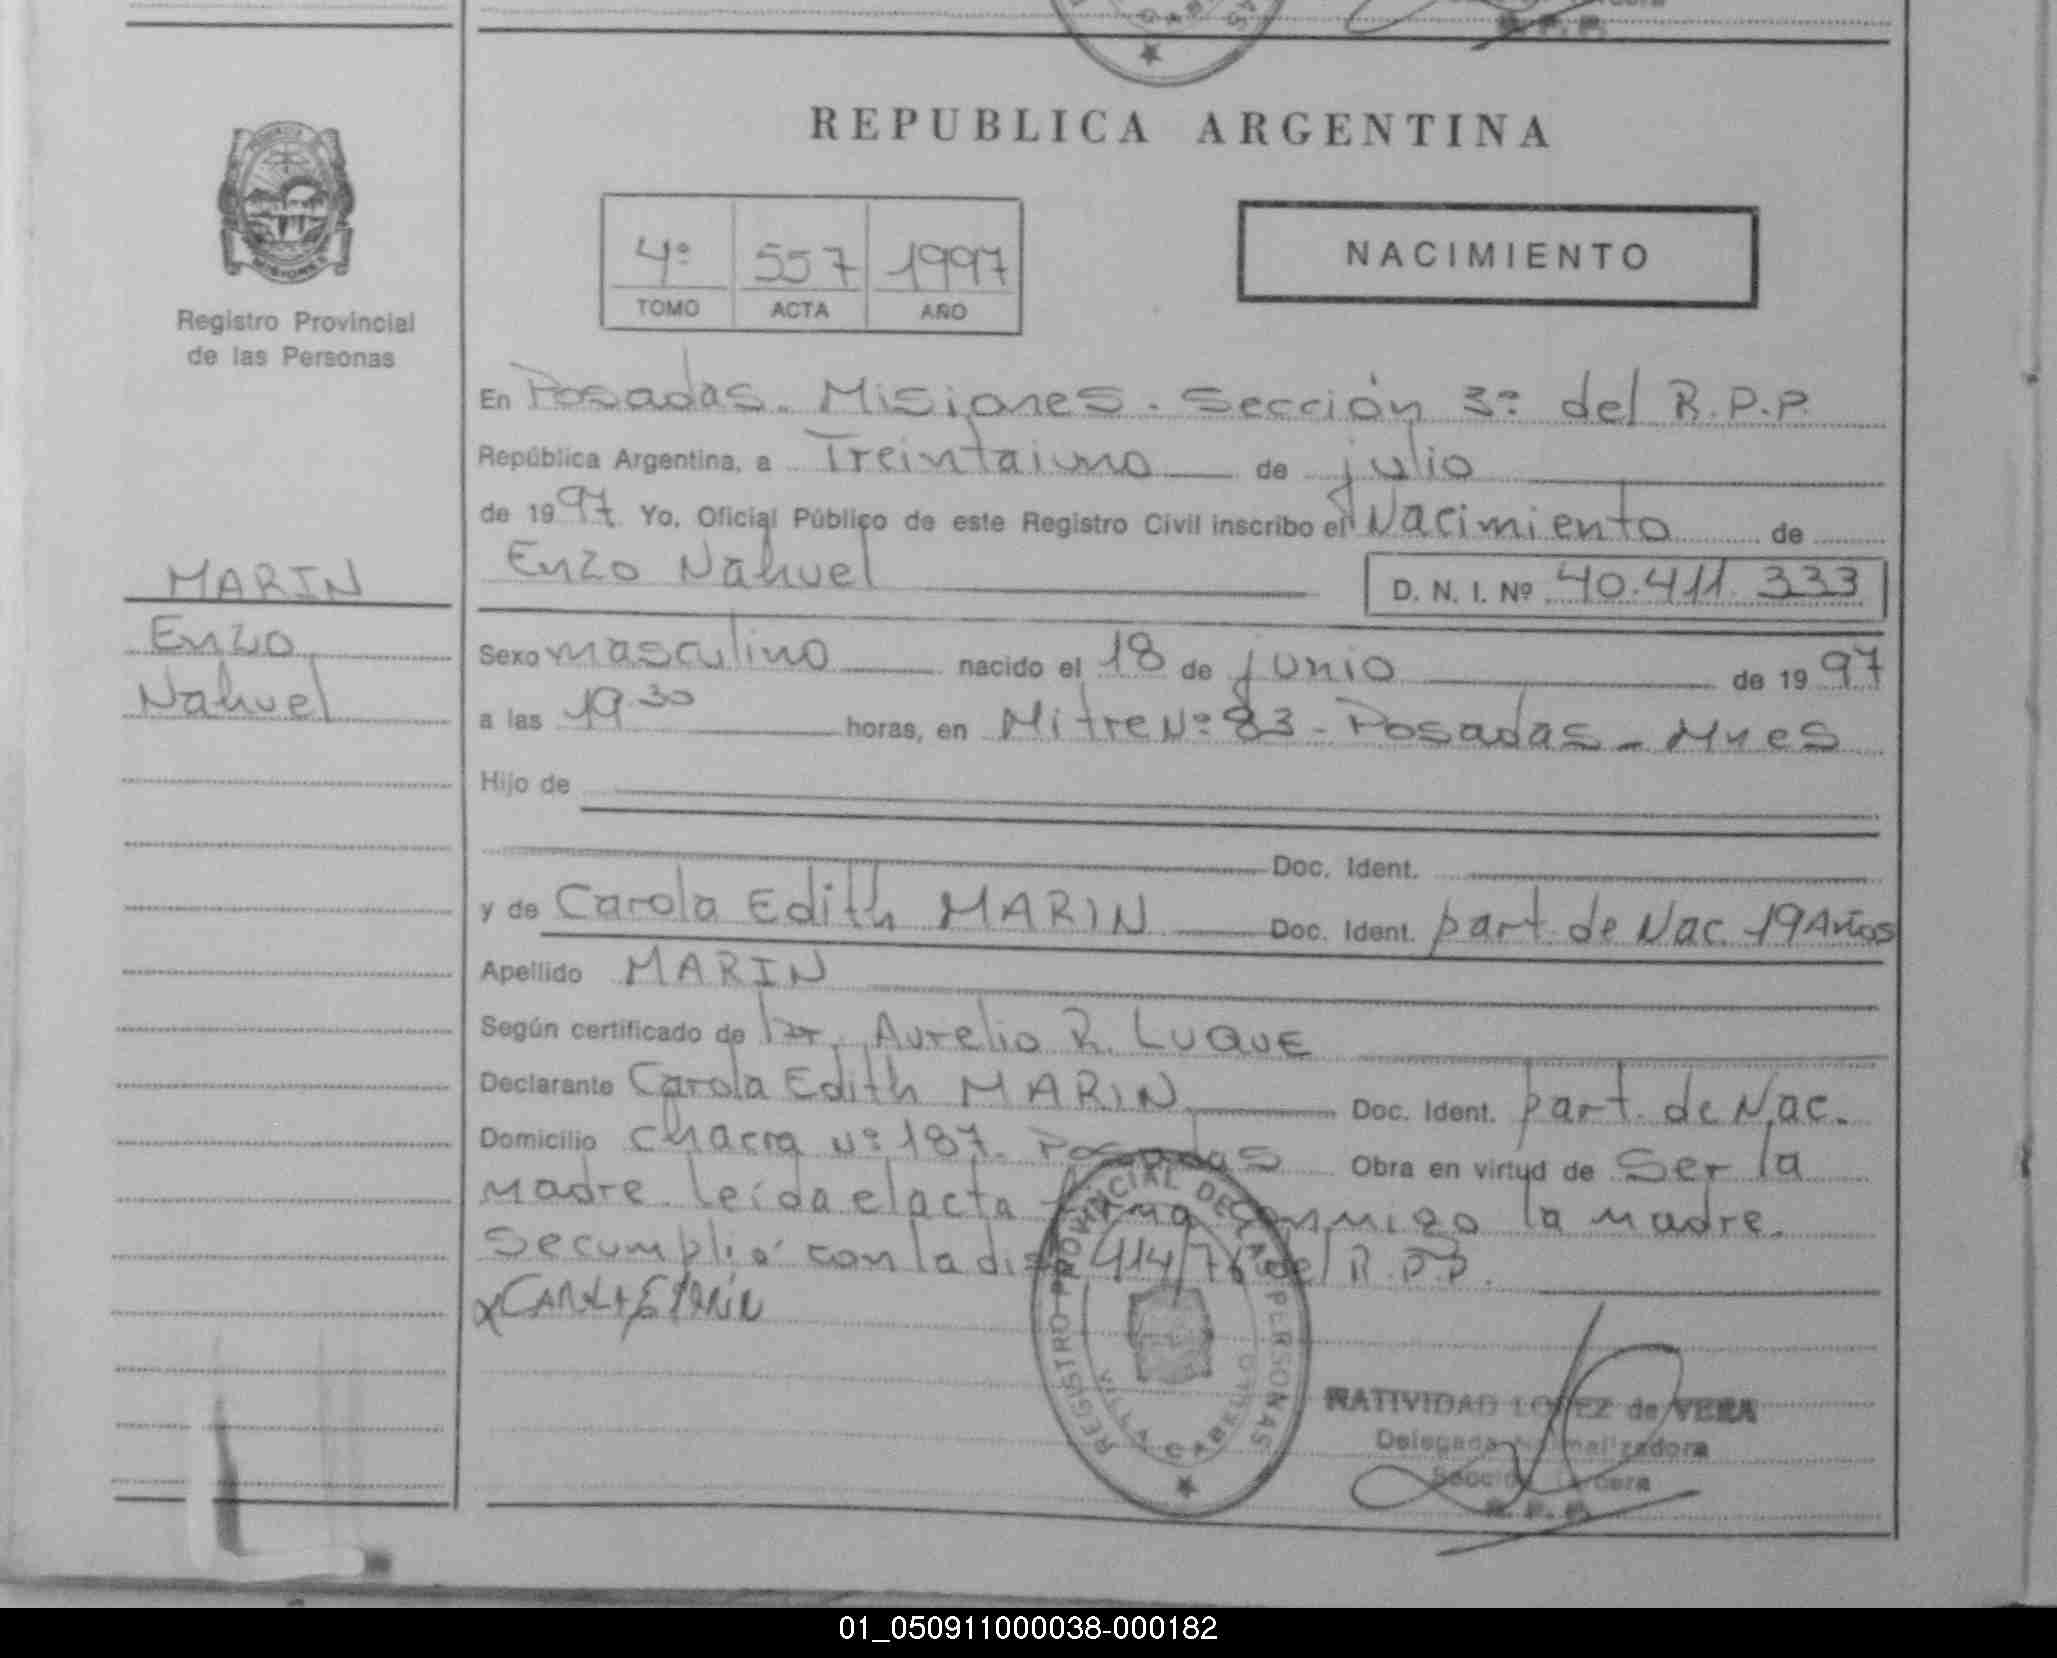 REPUBLICA ARGENTINA
MISIONES
Registro Provincial
de las Personas
4º 557 1997
TOMO ACTA AÑO
NACIMIENTO
En Posadas. Misiones. Sección 3º del R.P.P.
República Argentina, a Treintaiuno de julio
de 1997 Yo, Oficial Público de este Registro Civil inscribo el Nacimiento de
Enzo Nahuel D. N. I. Nº 40.411.333
MARIN
Enzo
Nahuel
Sexo masculino nacido el 18 de junio de 1997
a las 19.30 horas, en Mitre Nº 83 - Posadas - Mnes
Hijo de
Doc. Ident.
y de Carola Edith MARIN Doc. Ident. part. de Nac. 19 Años
Apellido MARIN
Según certificado de Dr. Aurelio R. LUQUE
Declarante Carola Edith MARIN Doc. Ident. part. de Nac.
Domicilio chacra Nº 187. Posadas Obra en virtud de Ser la
madre. leída el acta firma conmigo la madre.
Se cumplió con la dis. 414/76 del R.P.P.
REGISTRO PROVINCIAL DE LAS PERSONAS
VILLA CABELLO
NATIVIDAD LOPEZ de VERA
Delegada Normalizadora
Sección Tercera
R. P. P.
01_050911000038-000182